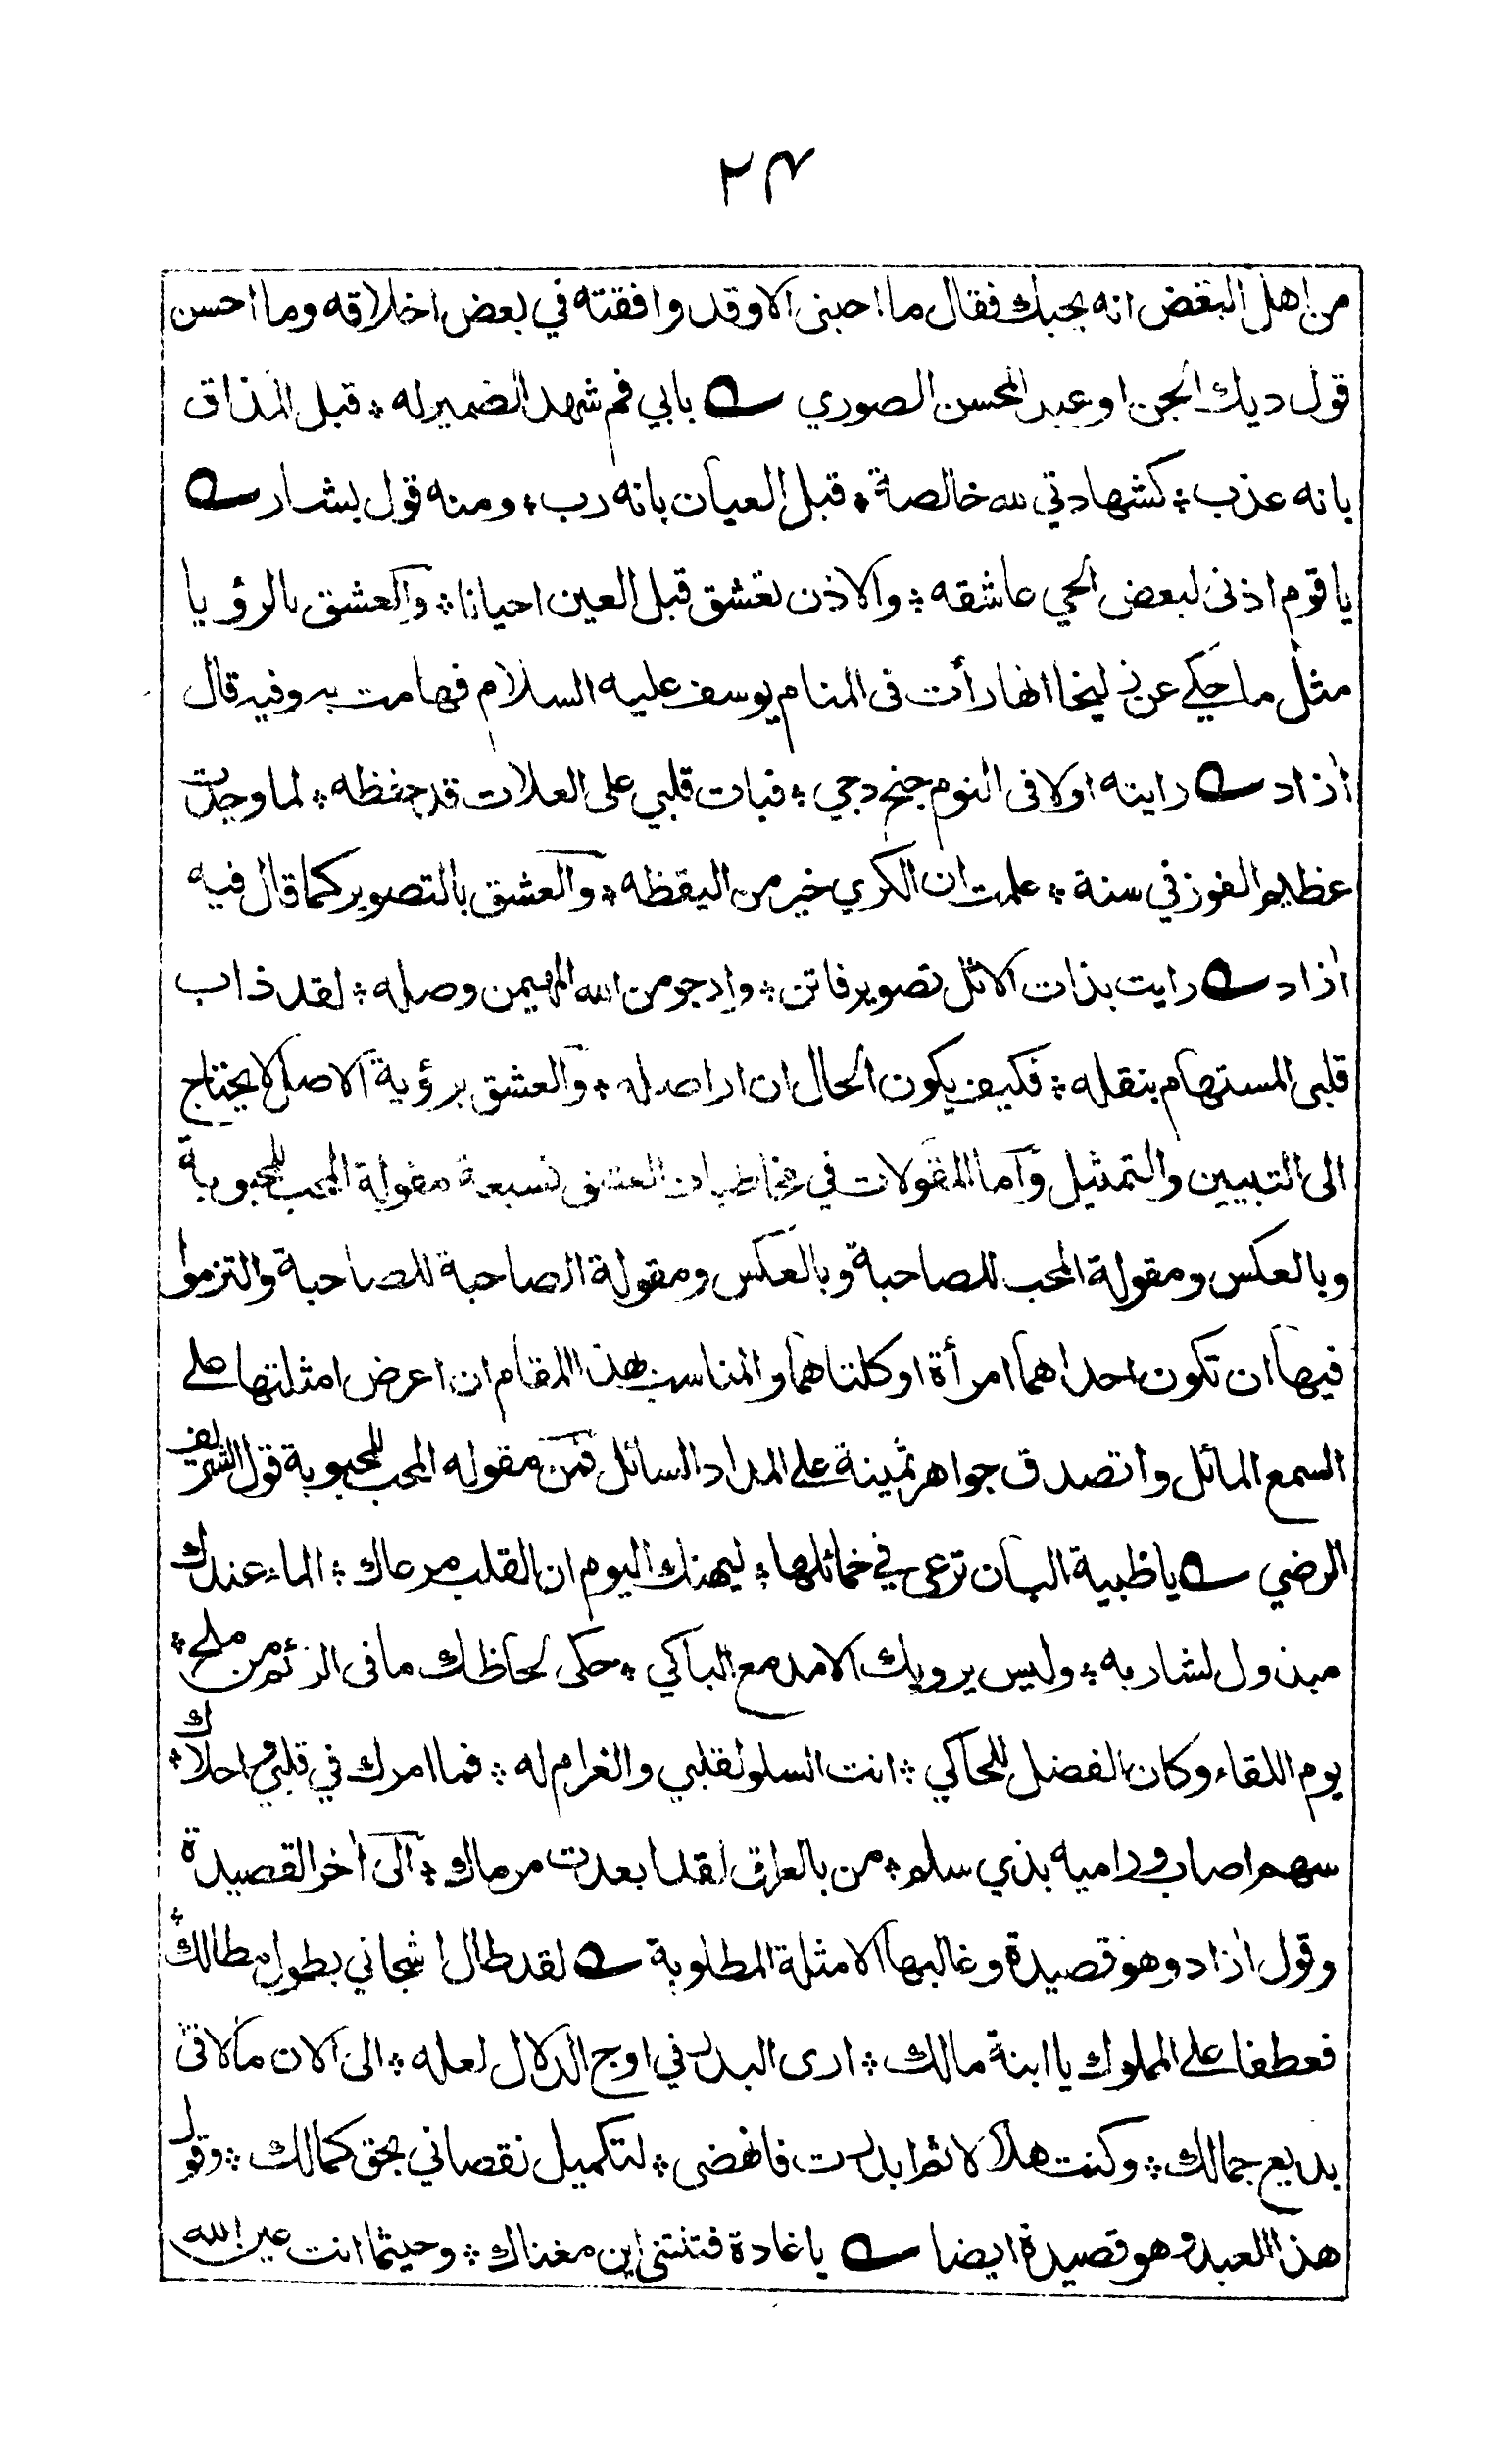 ٢٤
من اهل البغض انه يحبك فقال ما احبنى الا وقد وافقته في بعض اخلاقه وما احسن
قول ديك الجن او عبد المحسن الصوري ؎ بابي فم شهد الضمير له ؞ قبل المذاق
بانه عذب ؞ كشهادتي لله خالصة ؞ قبل العيان بانه رب ؞ ومنه قول بشار ؎
يا قوم اذنى لبعض الحي عاشقه ؞ والاذن تعشق قبل العين احيانا ؞ والعشق بالرؤيا
مثل ما حكے عن زليخا انها رأت فى المنام يوسف عليه السلام فهامت به وفيه قال
أزاد ؎ رايته اولا فى النوم جنح دجي ؞ فبات قلبي على العلات قد حفظه ؞ لما وجدت
عظيم الفوز في سنة ؞ علمت ان الكري خير من اليقظه ؞ والعشق بالتصوير كما قال فيه
أزاد ؎ رايت بذات الاثل تصوير فاتن ؞ وارجو من الله المهيمن وصله ؞ لقد ذاب
قلبى المستهام بنقله ؞ فكيف يكون الحال ان ار اصله ؞ والعشق برؤية الاصل لا يحتاج
الى التبيين والتمثيل وآما المقولات في مخاطبات العشق فسبعة مقولة المحب للمحبوبة
وبالعكس ومقولة المحب للصاحبة وبالعكس ومقولة الصاحبة للصاحبة والتزموا
فيها ان تكون احداهما امرأة او كلتاهما والمناسب بهذا المقام ان اعرض امثلتها علے
السمع المائل واتصدق جواهر ثمينة علے المداد السائل فمن مقوله المحب للمحبوبة قول الشريف
الرضي ؎ يا ظبية البان ترعى في خمائلها ؞ ليهنك اليوم ان القلب مرعاك ؞ الماء عندك
مبذول لشاربه ؞ وليس يرويك الا مدمع الباكي ؞ حكى لحاظك ما فى الرئم من ملح ؞
يوم اللقاء وكان الفضل للحاكي ؞ انت السلو لقلبي والغرام له ؞ فما امرك في قلبي واحلاك ؞
سهم اصاب وراميه بذي سلم ؞ من بالعراق لقد ابعدت مرماك ؞ الى أخر القصيدة
وقول أزاد وهو قصيدة وغالبها الامثلة المطلوبة ؎ لقد طال اشجاني بطول مطالك ؞
فعطفا علے المملوك يا ابنة مالك ؞ ارى البدر في اوج الدلال لعله ؞ الى الان ما لاقى
بديع جمالك ؞ وكنت هلالا ثم ابدرت فانهضى ؞ لتكميل نقصاني بحق كمالك ؞ وقول
هذا العبد وهو قصيدة ايضا ؎ يا غادة فتنتنى اين مغناك ؞ وحيثما انت عين الله